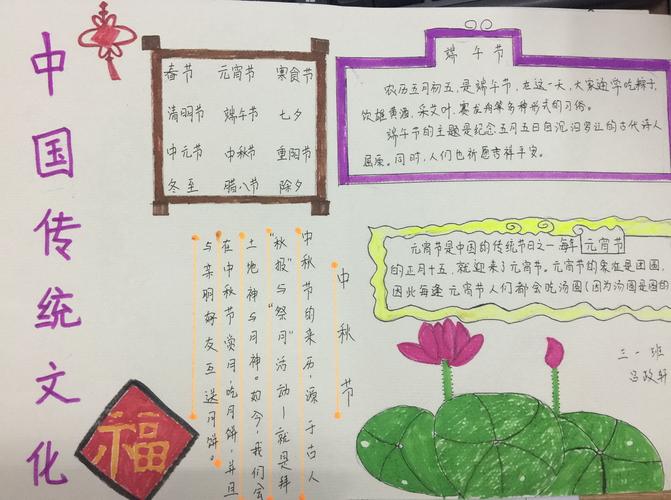 中国传统文化
春节 元宵节 寒食节
清明节 端午节 七夕
中元节 中秋节 重阳节
冬至 腊八节 除夕
端午节
农历五月初五,是端午节,在这一天,大家通常吃粽子,
饮雄黄酒,采艾叶,赛龙舟等多种形式的习俗。
端午节的主题是纪念五月五日自沉汨罗江的古代诗人
屈原。同时,人们也祈愿吉祥平安。
元宵节是中国的传统节日之一 每年 元宵节
的正月十五,就迎来了元宵节。元宵节的象征是团圆
因此每逢元宵节人们都会吃汤圆(因为汤圆是圆的
中秋节
中秋节的来历,源于古人
"秋报"与"祭月"活动—就是拜
土地神与月神。如今,我们会
在中秋节赏月,吃月饼,并且
与亲朋好友互送月饼。
福
三一班
吕政轩